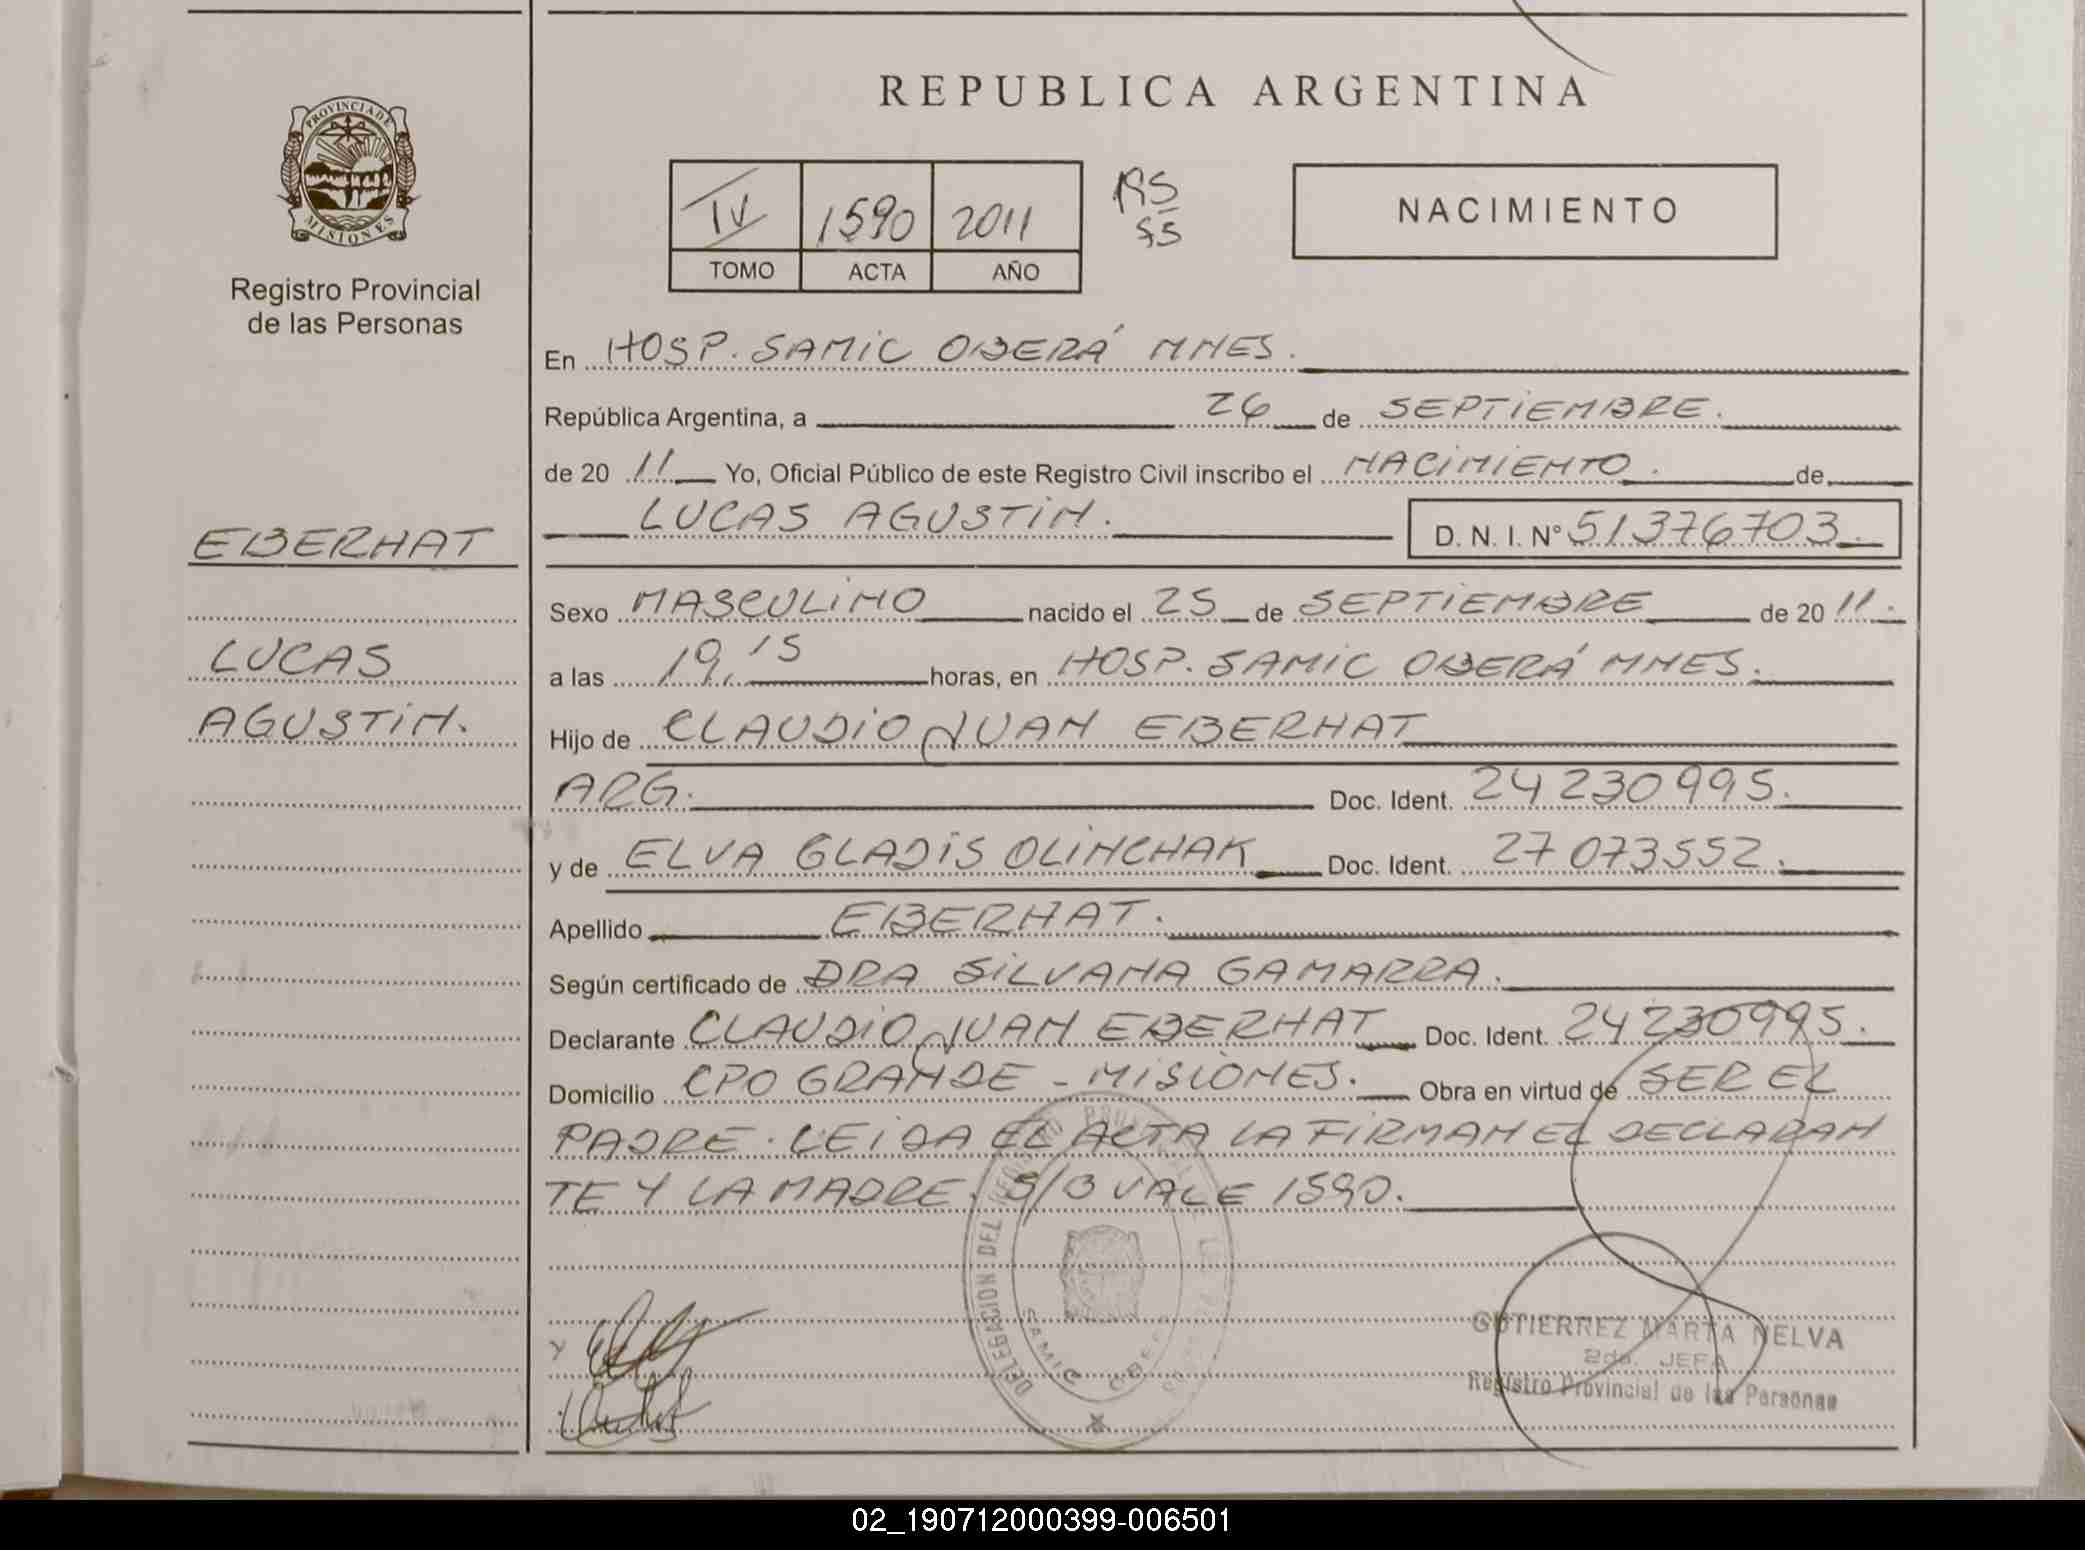 REPUBLICA ARGENTINA
PROVINCIA DE
MISIONES
Registro Provincial
de las Personas
IV 1590 2011
TOMO ACTA AÑO
NACIMIENTO
En HOSP. SAMIC OBERÁ MNES.
República Argentina, a 26 de SEPTIEMBRE.
de 20 11 Yo, Oficial Público de este Registro Civil inscribo el NACIMIENTO. de
LUCAS AGUSTIN. D. N. I. Nº 51376703.
EBERHAT
LUCAS
AGUSTIN.
Sexo MASCULINO nacido el 25 de SEPTIEMBRE de 20 11.
a las 19,15 horas, en HOSP. SAMIC OBERÁ MNES.
Hijo de CLAUDIO JUAN EBERHAT
ARG. Doc. Ident. 24230995.
y de ELVA GLADIS OLINCHAK Doc. Ident. 27073552.
Apellido EBERHAT.
Según certificado de DRA SILVANA GAMARRA.
Declarante CLAUDIO JUAN EBERHAT Doc. Ident. 24230995.
Domicilio CPO GRANDE - MISIONES. Obra en virtud de SER EL
PADRE. LEIDA EL ACTA LA FIRMAN EL DECLARAN
TE Y LA MADRE. S/B VALE 1590.
DELEGACION DEL REGISTRO PROVINCIAL DE LAS PERSONAS
SAMIC OBERA
GUTIERREZ MARTA NELVA
2da. JEFA
Registro Provincial de las Personas
02_190712000399-006501